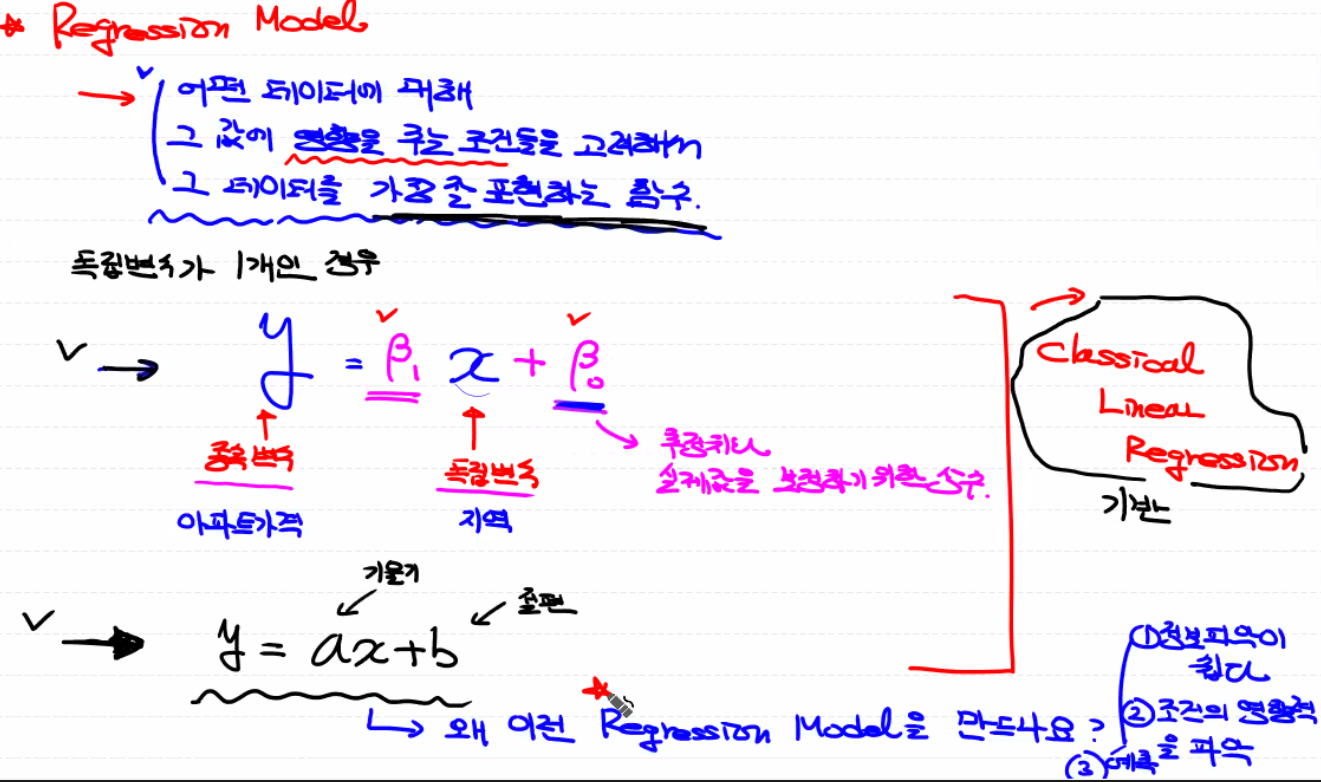 * Regression Model
어떤 데이터에 대해
그 값에 영향을 주는 조건들을 고려해서
그 데이터를 가장 잘 표현하는 함수.
독립변수가 1개인 경우
y = β₁ x + β₀
종속변수
독립변수
아파트가격
지역
추정치와
실제값을 보정하기 위한 상수.
Classical
Linear
Regression
기반
기울기
절편
y = ax+b
왜 이런 Regression Model을 만드나요?
① 정보파악이
쉽다
② 조건의 영향력
을 파악
③ 예측